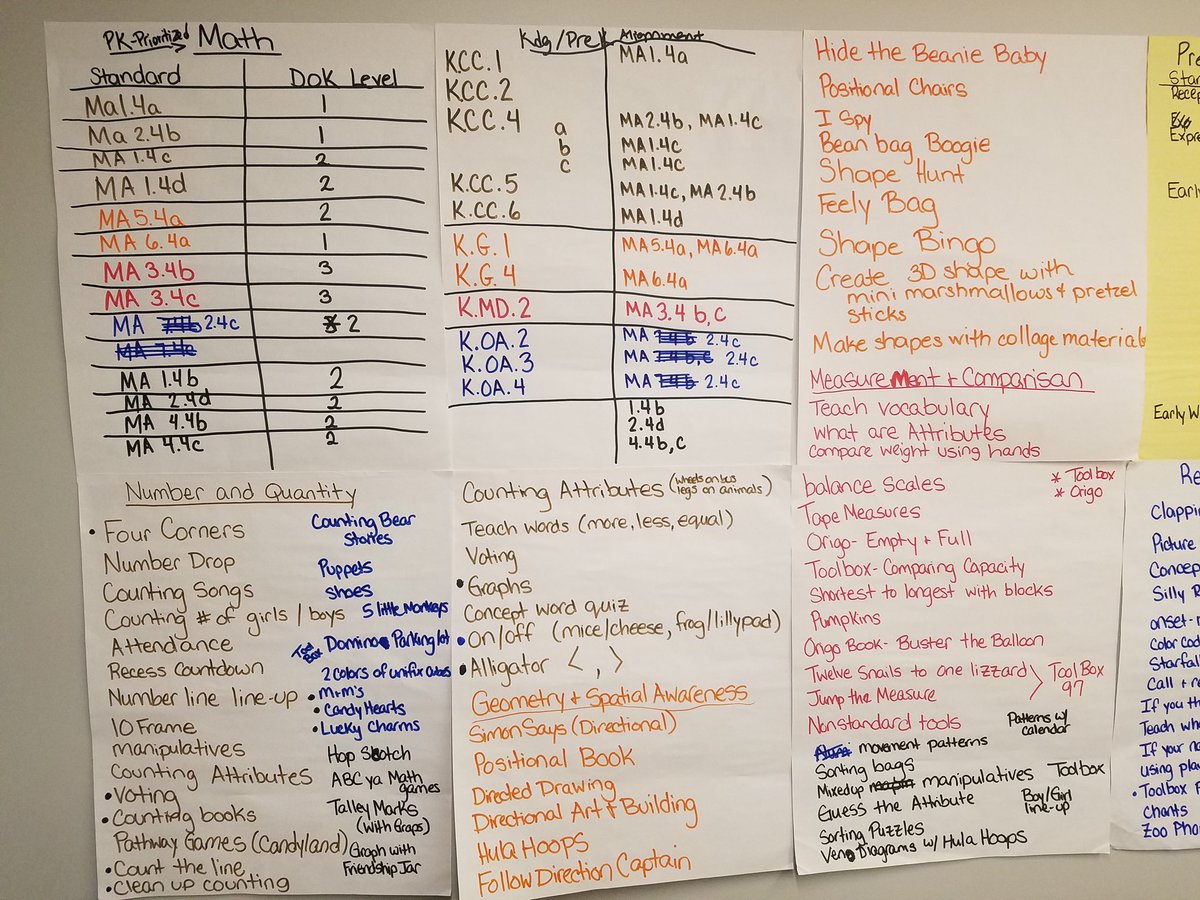 PK-Prioritized Math
Standard DOK Level
Ma1.4a 1
Ma 2.4b 1
MA 1.4c 2
MA 1.4d 2
MA 5.4a 2
MA 6.4a 1
MA 3.4b 3
MA 3.4c 3
MA 2.4c 2
MA 1.4b 2
MA 2.4d 2
MA 4.4b 2
MA 4.4c 2
Kdg/PreK Alignment
KCC.1 MA1.4a
KCC.2
KCC.4 a MA2.4b, MA1.4c
b MA1.4c
c MA1.4c
K.CC.5 MA1.4c, MA2.4b
K.CC.6 MA1.4d
K.G.1 MA5.4a, MA6.4a
K.G.4 MA6.4a
K.MD.2 MA3.4 b,c
K.OA.2 MA 2.4c
K.OA.3 MA 2.4c
K.OA.4 MA 2.4c
1.4b
2.4d
4.4b,c
Hide the Beanie Baby
Positional Chairs
I Spy
Bean bag Boogie
Shape Hunt
Feely Bag
Shape Bingo
Create 3D shape with
mini marshmallows & pretzel
sticks
Make shapes with collage materials
Measurement + Comparisan
Teach vocabulary
what are Attributes
compare weight using hands
Number and Quantity
• Four Corners
Number Drop
Counting Songs
Counting # of girls / boys
Attendance
Recess Countdown
Number line line-up
10 Frame
manipulatives
Counting Attributes
• Voting
• Counting books
Pathway Games (Candyland)
• Count the line
• Clean up counting
Counting Bear
Stories
Puppets
Shoes
5 little Monkeys
Tool Box Domino Parking lot
2 colors of unifix cubes
• M+M's
• Candy Hearts
• Lucky Charms
Hop Scotch
ABC ya Math
games
Talley Marks
(with Graps)
Graph with
Friendship Jar
Counting Attributes (wheels on bus
legs on animals)
Teach words (more, less, equal)
Voting
• Graphs
Concept word quiz
• On/off (mice/cheese, frog/lillypad)
• Alligator < , >
Geometry + Spatial Awareness
Simon Says (Directional)
Positional Book
Directed Drawing
Directional Art & Building
Hula Hoops
Follow Direction Captain
balance Scales
* Toolbox
* Origo
Tape Measures
Origo- Empty + Full
Toolbox- Comparing Capacity
Shortest to longest with blocks
Pumpkins
Origo Book- Buster the Balloon
Twelve Snails to one lizzard
Jump the Measure
ToolBox
97
Nonstandard tools
Patterns w/
calendar
movement patterns
Sorting bags
Mixedup manipulatives Toolbox
Guess the Attribute
Boy/Girl
line-up
Sorting Puzzles
Venn Diagrams w/ Hula Hoops
Pre
Star
Recep
Expre
Early
Early W
Re
Clappin
Picture
Concep
Silly R
onset-
Color cod
Starfall
Call + r
If you th
Teach wh
If your na
using pla
• Toolbox P
Chants
Zoo Pho